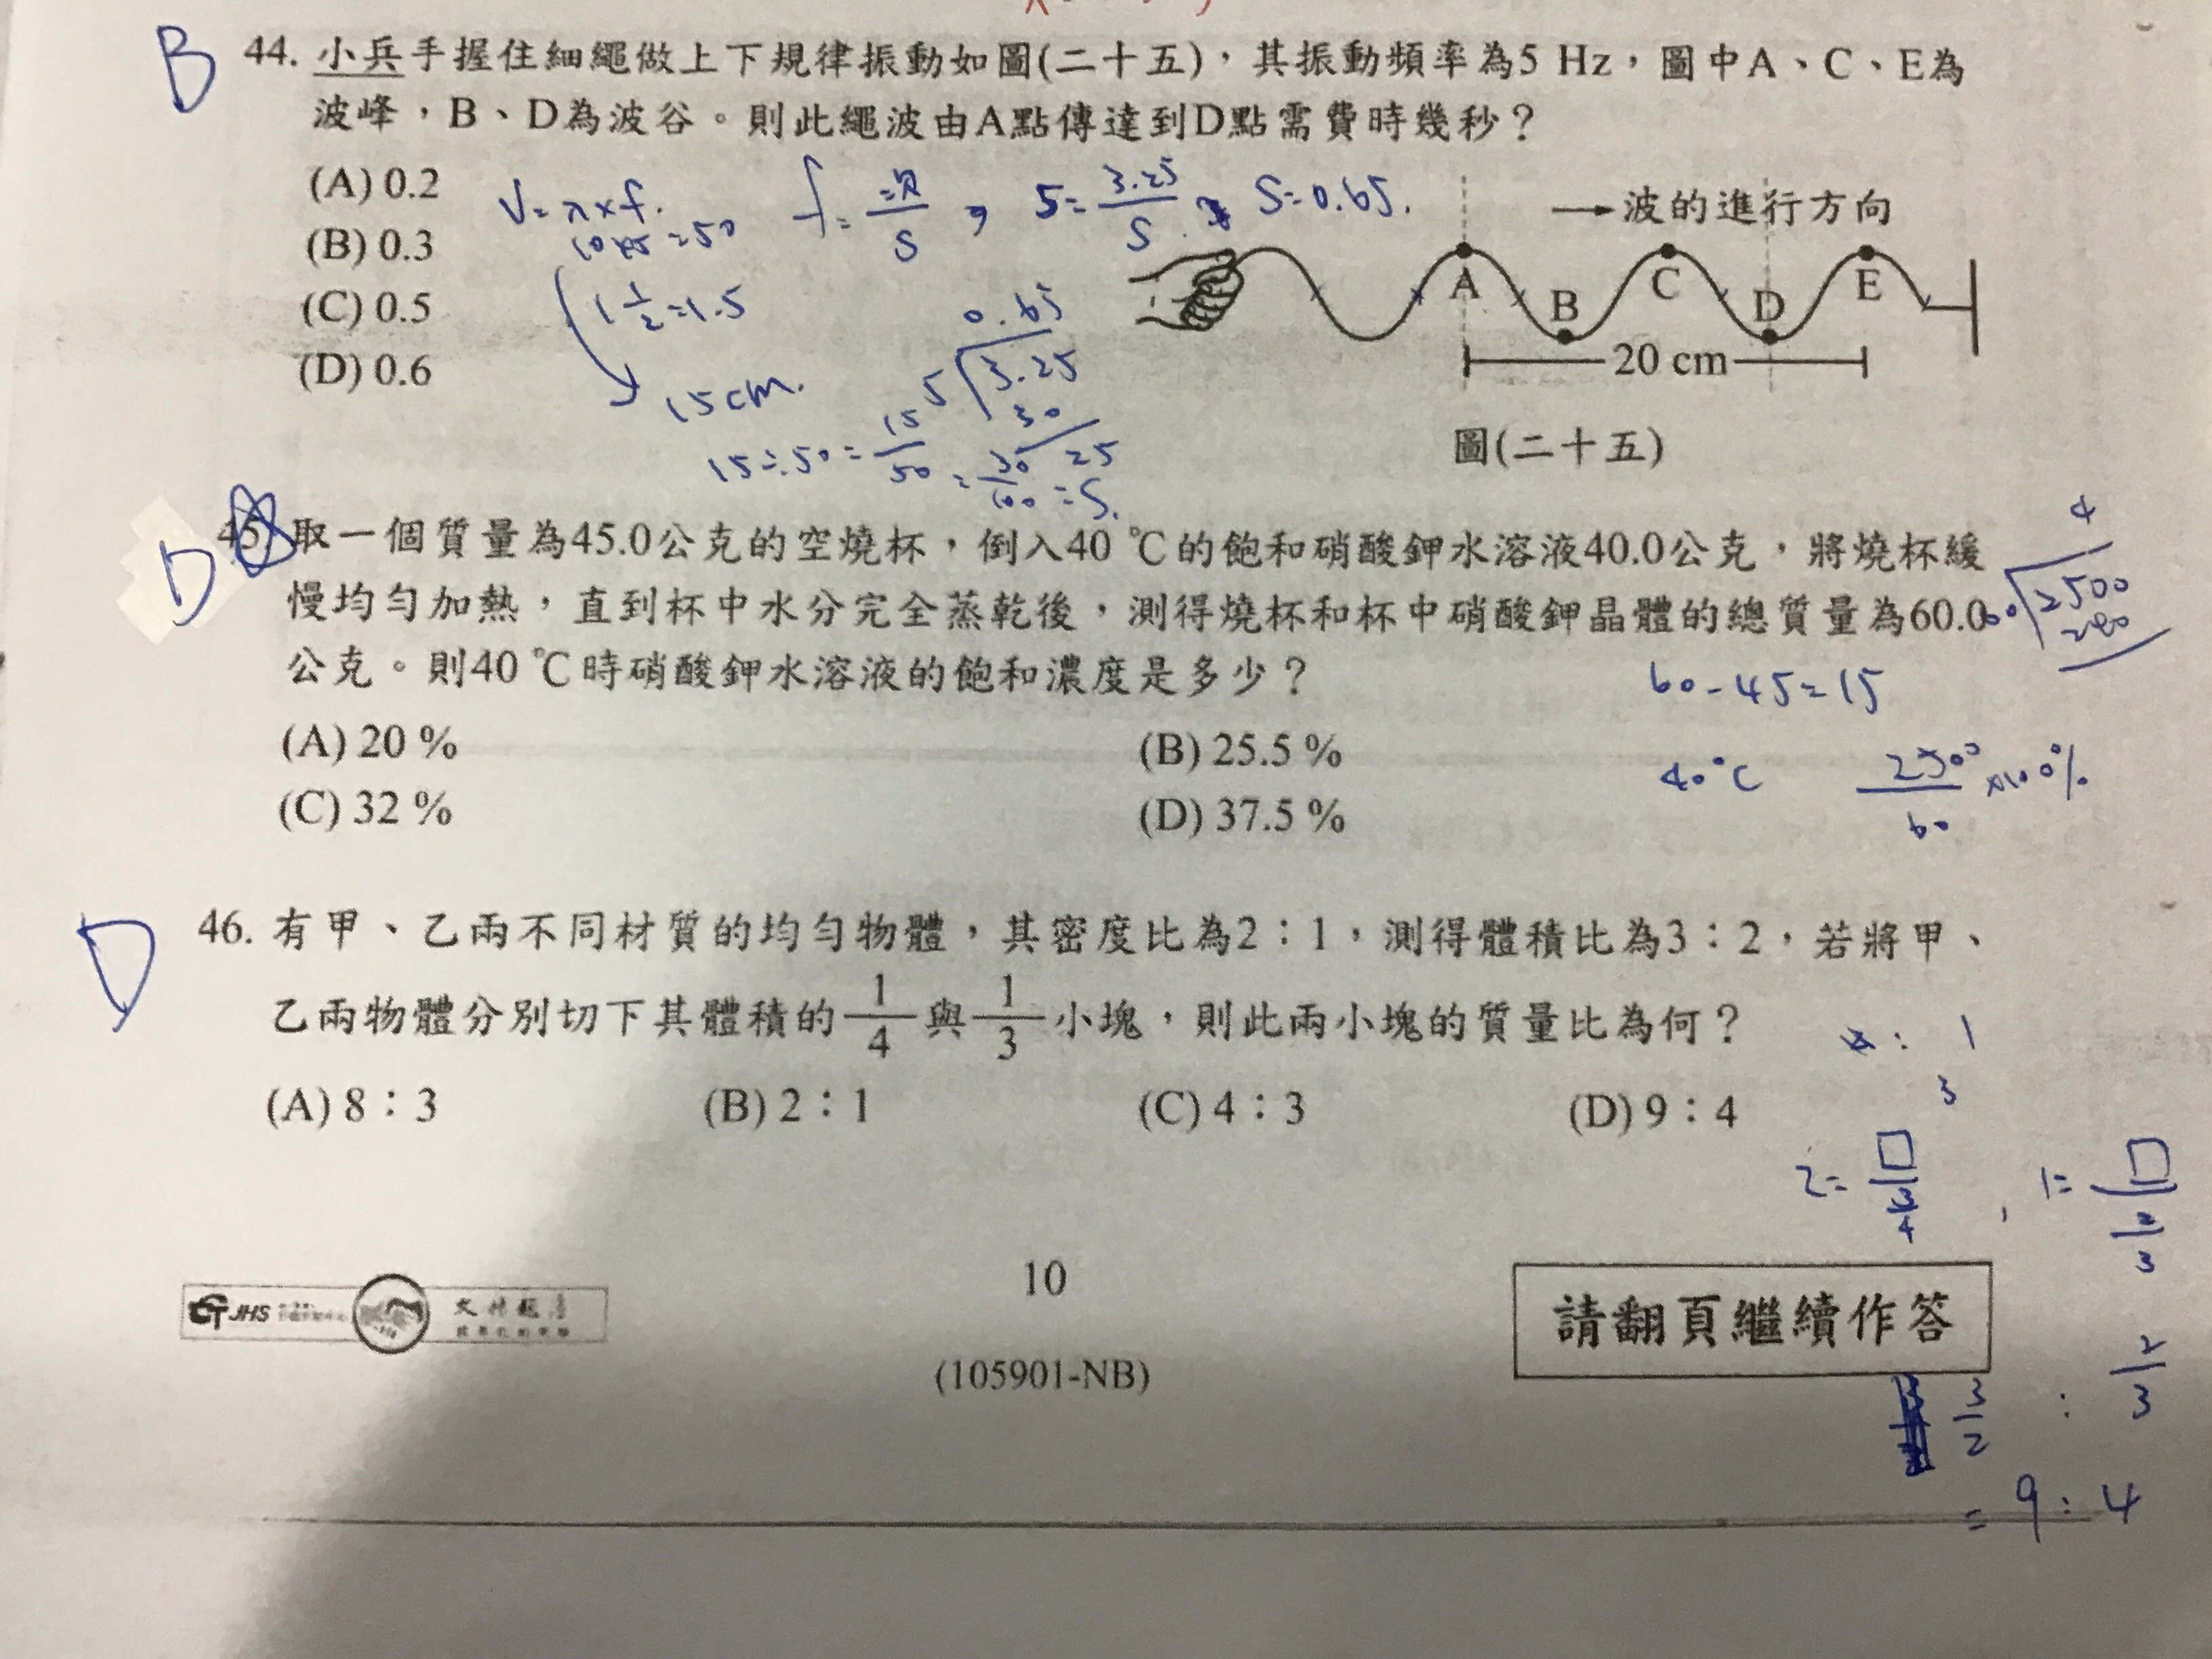 B
44. 小兵手握住細繩做上下規律振動如圖(二十五)，其振動頻率為5 Hz，圖中A、C、E為
波峰，B、D為波谷。則此繩波由A點傳達到D點需費時幾秒？
(A) 0.2
(B) 0.3
(C) 0.5
(D) 0.6
V=λ×f.
10×5=50
5=3.25/S
S=0.65.
1 1/2=1.5
15cm.
15÷50=15/50=30/100=S.
0.65
5 3.25
30
25
→波的進行方向
A
B
C
D
E
20 cm
圖(二十五)
D
45. 取一個質量為45.0公克的空燒杯，倒入40 ℃的飽和硝酸鉀水溶液40.0公克，將燒杯緩
慢均勻加熱，直到杯中水分完全蒸乾後，測得燒杯和杯中硝酸鉀晶體的總質量為60.0
公克。則40 ℃時硝酸鉀水溶液的飽和濃度是多少？
(A) 20 %
(B) 25.5 %
(C) 32 %
(D) 37.5 %
4
2500
60-45=15
40°C
D
46. 有甲、乙兩不同材質的均勻物體，其密度比為2：1，測得體積比為3：2，若將甲、
乙兩物體分別切下其體積的1/4與1/3小塊，則此兩小塊的質量比為何？
(A) 8：3
(B) 2：1
(C) 4：3
(D) 9：4
: 1
3
2=□/(3/4) , 1=□/(2/3)
3/2 : 2/3
= 9:4
JHS
10
(105901-NB)
請翻頁繼續作答